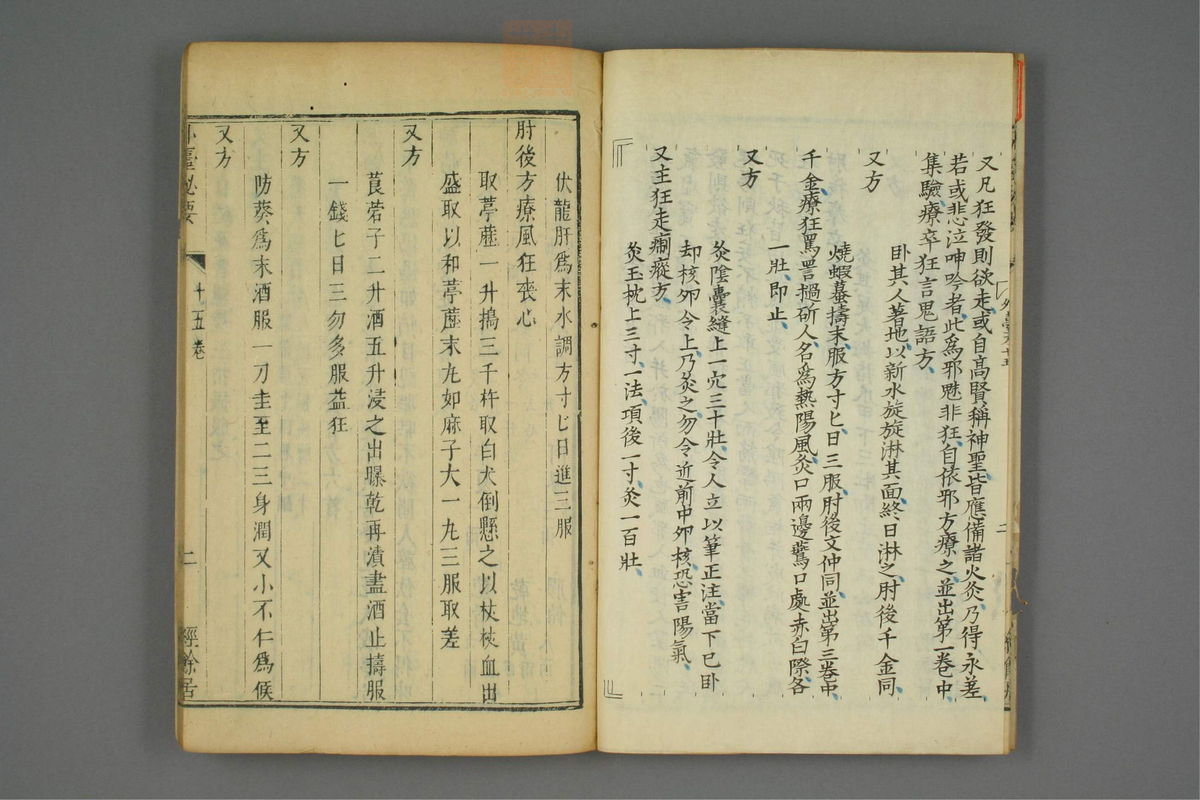 又凡狂發則欲走或自高賢稱神聖皆應備諸火灸乃得永差
若或悲泣呻吟者此為邪魅非狂自依邪方療之並出第一卷中
集驗療卒狂言鬼語方
卧其人著地以新水旋旋淋其面終日淋之肘後千金同
又方
燒蝦蟇擣末服方寸匕日三服肘後文仲同並出第三卷中
千金療狂罵詈撾斫人名為熱陽風灸口兩邊鷰口處赤白際各
一壯即止
又方
灸陰囊縫上一穴三十壯令人立以筆正注當下已卧
却核夘令上乃灸之勿令近前中夘核恐害陽氣
又主狂走癎瘲方
灸玉枕上三寸一法項後一寸灸一百壯
伏龍肝爲末水調方寸匕日進三服
肘後方療風狂喪心
取葶藶一升搗三千杵取白犬倒懸之以杖杖血出
盛取以和葶藶末丸如麻子大一丸三服取差
又方
莨菪子二升酒五升浸之出曝乾再漬盡酒止擣服
一錢匕日三勿多服益狂
又方
防葵爲末酒服一刀圭至二三身潤又小不仁爲候
又方
外臺秘要 十五卷 二 經餘居